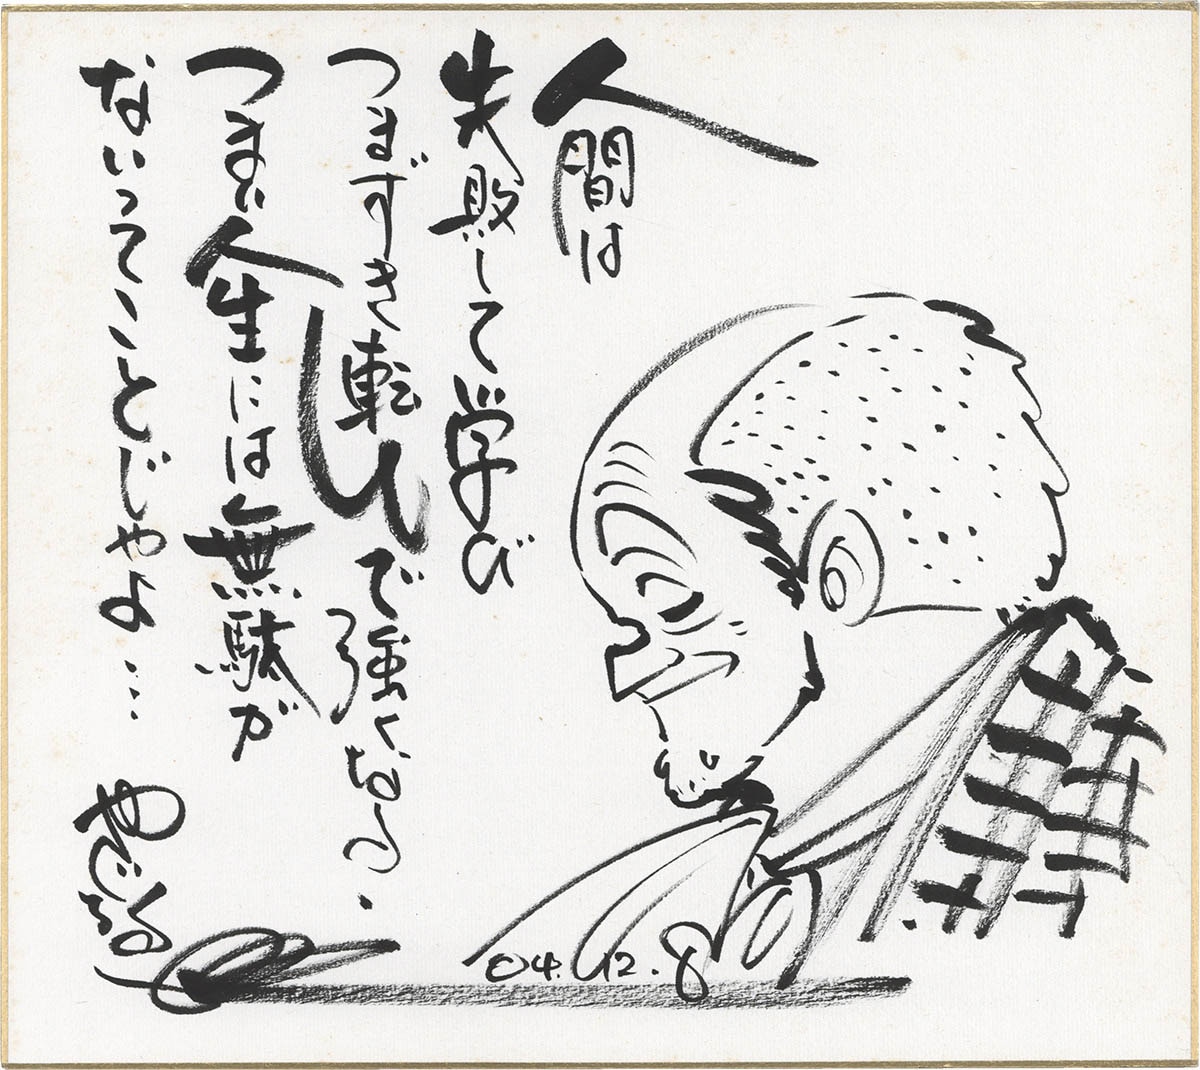 人間は
失敗して学び
つまずき転んで強くなる.
つまり人生には無駄が
ないってことじゃよ…
04.12.8